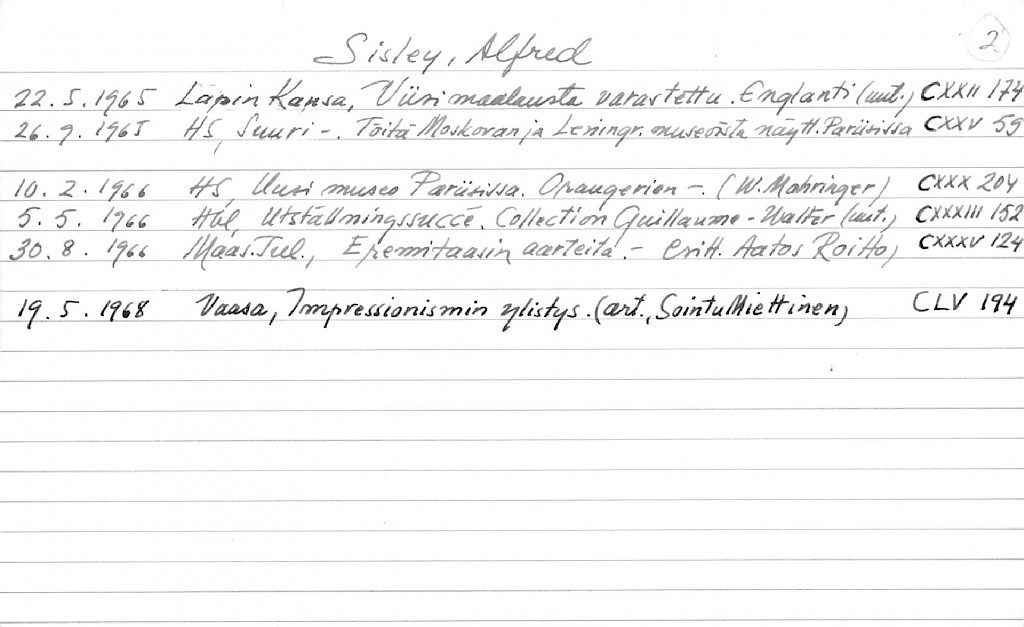 2
Sisley, Alfred
22.5.1965 Lapin Kansa, Viisi maalausta varastettu. Englanti (uut.) CXXII 174
26.9.1965 HS, Suuri -. Töitä Moskovan ja Leningr. museoista näytt. Pariisissa CXXV 59
10.2.1966 HS, Uusi museo Pariisissa. Orangerien -. (W. Mohringer) CXXX 204
5.5.1966 Hbl, Utställningssuccé. Collection Guillaume-Walter (uut.) CXXXIII 152
30.8.1966 Maas.Tul., Eremitaasin aarteita. - Aatos Roitto) CXXXV 124
19.5.1968 Vaasa, Impressionismin ylistys. (art., Sointu Miettinen) CLV 194